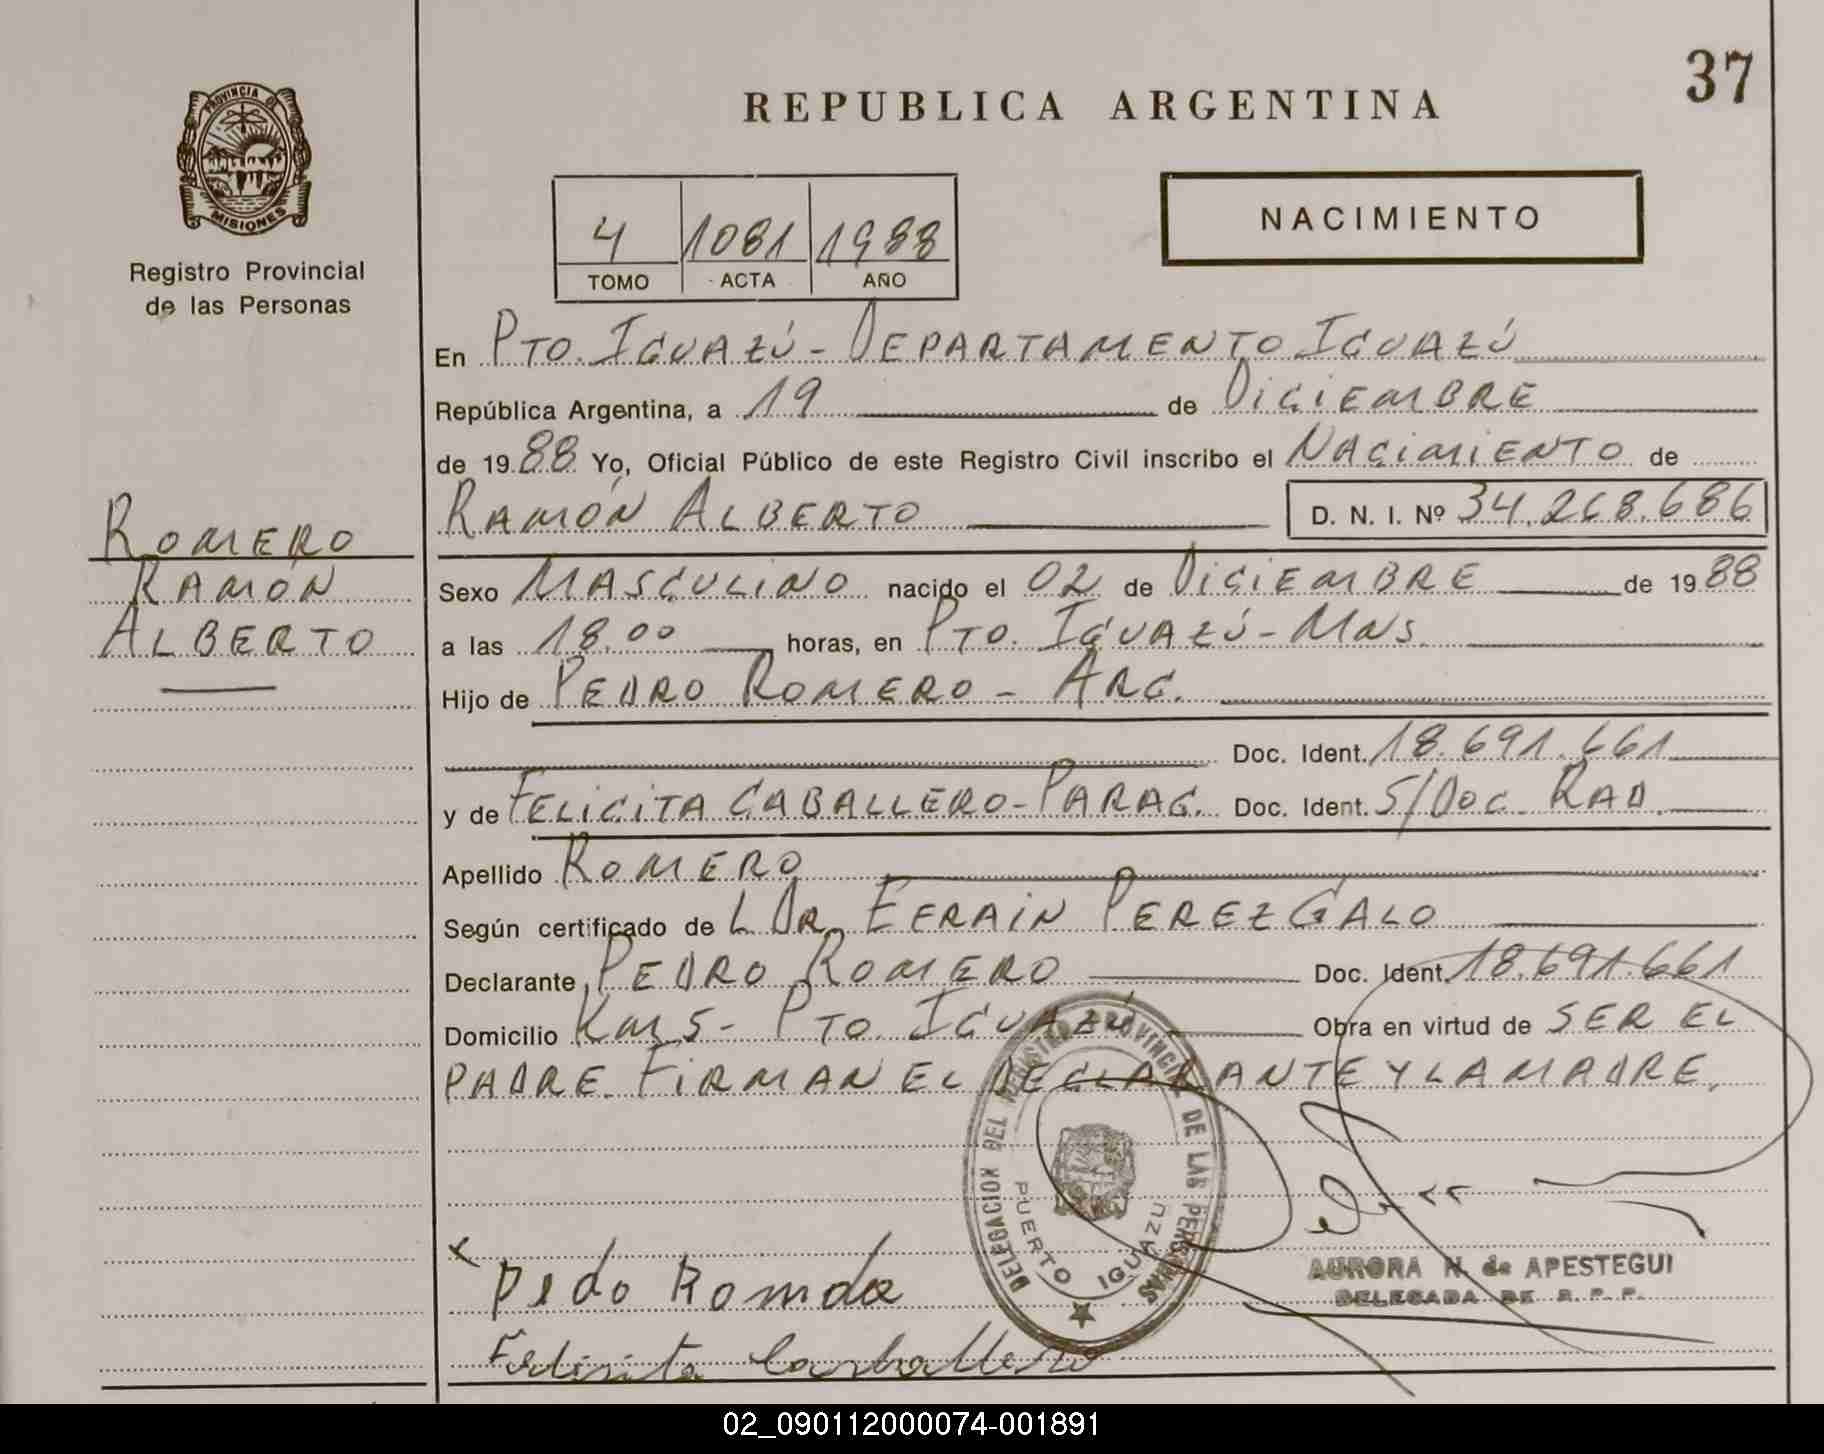 37
REPUBLICA ARGENTINA
PROVINCIA DE
MISIONES
Registro Provincial
de las Personas
NACIMIENTO
4 1081 1988
TOMO ACTA AÑO
En PTO. IGUAZÚ - DEPARTAMENTO IGUAZÚ
República Argentina, a 19 de DICIEMBRE
de 1988 Yo, Oficial Público de este Registro Civil inscribo el NACIMIENTO de
RAMÓN ALBERTO D. N. I. Nº 34.268.686
ROMERO
RAMÓN
ALBERTO
Sexo MASCULINO nacido el 02 de DICIEMBRE de 1988
a las 18.00 horas, en PTO. IGUAZÚ - MNS.
Hijo de PEDRO ROMERO - ARG.
Doc. Ident. 18.691.661
y de FELICITA CABALLERO - PARAG. Doc. Ident. S/DOC. RAD.
Apellido ROMERO
Según certificado de L DR. EFRAIN PEREZ GALO
Declarante PEDRO ROMERO Doc. Ident. 18.691.661
Domicilio KM 5 - PTO. IGUAZÚ Obra en virtud de SER EL
PADRE. FIRMAN EL DECLARANTE Y LA MADRE.
DELEGACION DEL REGISTRO PROVINCIAL DE LAS PERSONAS
PUERTO IGUAZU
Pedo Romda
AURORA N. de APESTEGUI
DELEGADA DE R. P. P.
Felisita Carballero
02_090112000074-001891